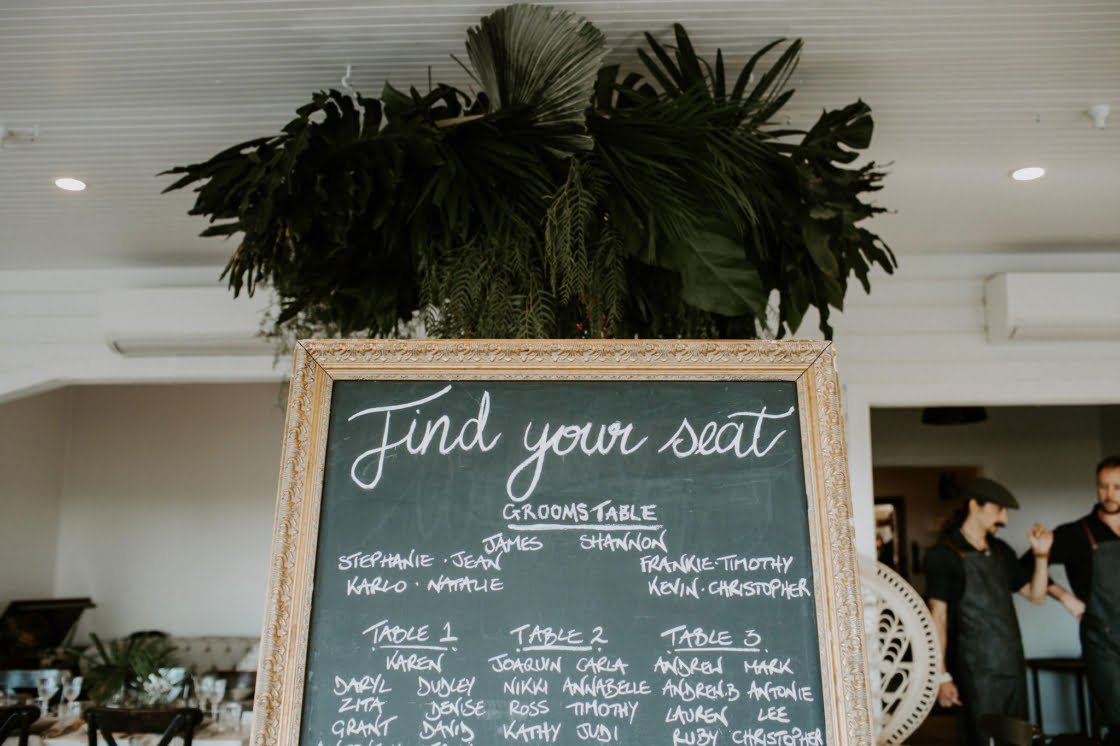 Find your seat
GROOMS TABLE
JAMES SHANNON
STEPHANIE · JEAN FRANKIE · TIMOTHY
KARLO · NATALIE KEVIN · CHRISTOPHER
TABLE 1 TABLE 2 TABLE 3
KAREN JOAQUIN CARLA ANDREW MARK
DARYL DUDLEY NIKKI ANNABELLE ANDREW.B ANTONIE
ZITA DENISE ROSS TIMOTHY LAUREN LEE
GRANT DAVID KATHY JUDI RUBY CHRISTOPHER